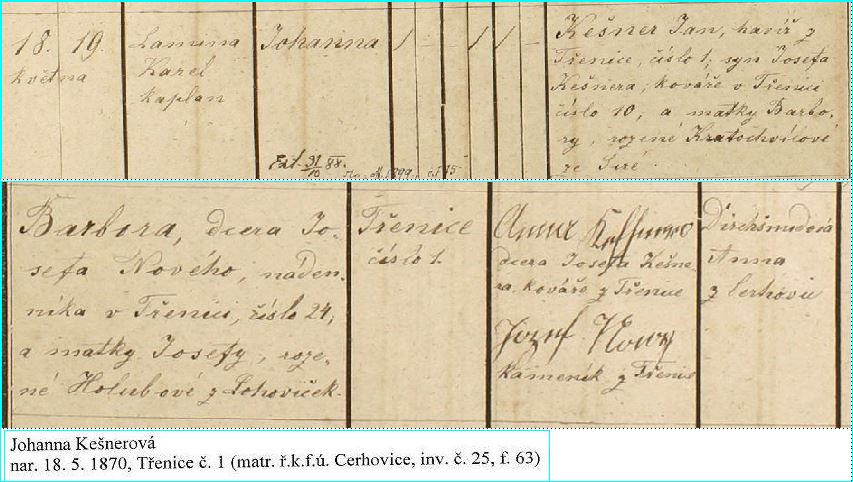 18. 19.
května
Lamina
Karel
kaplan
Johanna / – / / –
Ext. 31/10 88.
Kešner Jan, havíř z
Třenice, číslo 1; syn Josefa
Kešnera, kováře v Třenici
číslo 10, a matky Barbo-
ry, rozené Kratochvílové
ze Siré.
Barbora, dcera Jo-
sefa Nového, náden-
níka v Třenici, číslo 24,
a matky Josefy, roze-
né Holubové z Lohoviček.
Třenice
číslo 1.
Anna
dcera Josefa Kešne-
ra, kováře z Třenice
Jozef Nowy
kameník z Třenice
Anna
z Cerhovic
Johanna Kešnerová
nar. 18. 5. 1870, Třenice č. 1 (matr. ř.k.f.ú. Cerhovice, inv. č. 25, f. 63)